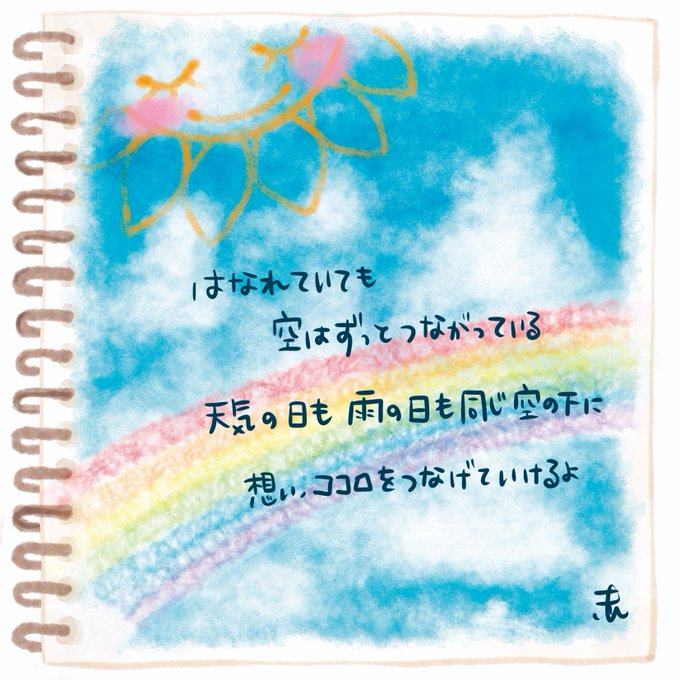 はなれていても
空はずっとつながっている
天気の日も 雨の日も同じ空の下に
想い、ココロをつなげていけるよ